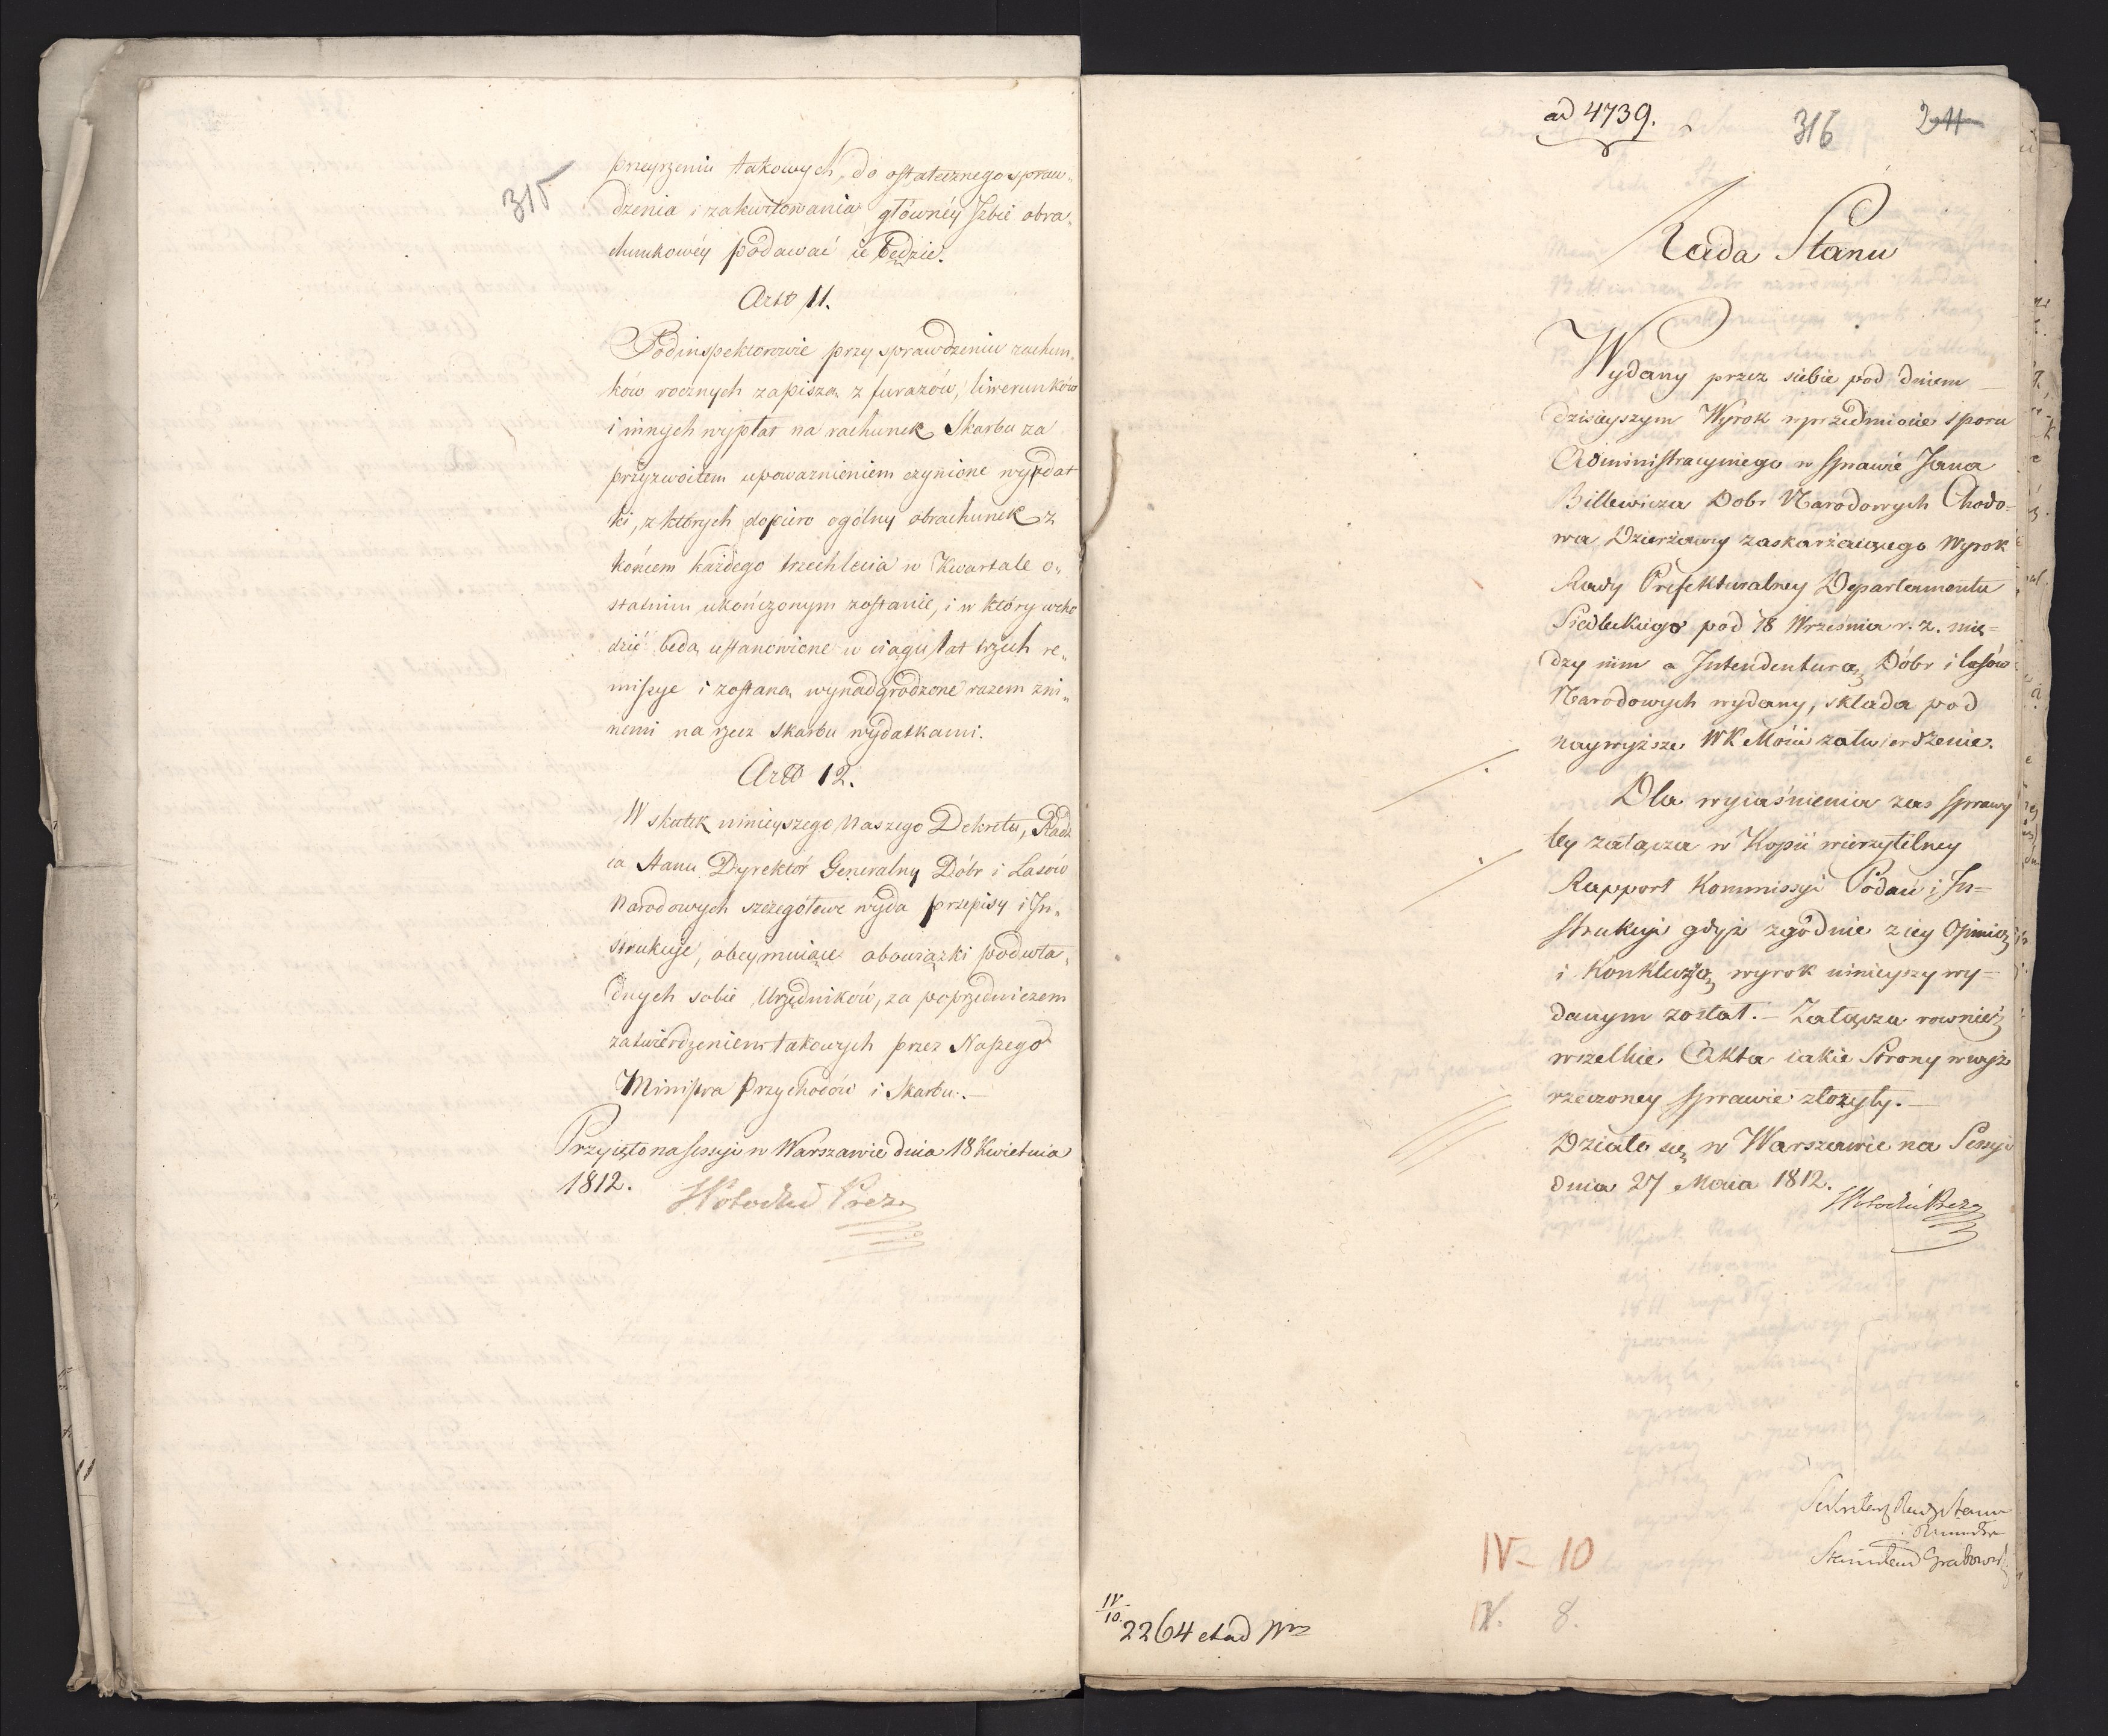 315
przeyrzeniu takowych, do ostatecznego spraw„
dzenia i zakwitowania główney Izbie obra„
chunkowéy podawać ie będzie.
Artł 11.
Podinspektorowie przy sprawdzeniu rachun„
ków rocznych zapiszą z furazów, liwerunków
i innych wypłat na rachunek Skarbu za
przyzwoitem upoważnieniem czynione wydat
ki, z których dopiero ogólny obrachunek z
końcem każdego trzechlecia w Kwartale o„
statnim ukończonym zostanie, i w który wcho
dzić będą ustanowione w ciągu lat trzech re„
missye i zostaną wynadgrodzone razem z in„
nemi na rzecz Skarbu wydatkami.
Artł 12.
W skutek ninieyszego Naszego Dekretu, Radz
ca Stanu Dyrektor Generalny Dóbr i Lasów
Narodowych szczegółowe wyda przepisy i In„
strukcye, obeymuiące obowiązki podwła„
dnych sobie Urzędników, za poprzedniczem
zatwierdzeniem takowych przez Naszego
Ministra Przychodów i Skarbu. —
Przyięto na Sessyi w Warszawie dnia 18 Kwietnia
1812.
Prez
ad 4739.
316
211
Rada Stanu
Wydany przez siebie pod dniem —
dzisieyszym Wyrok w przedmiocie sporu
Administracyinego w sprawie Jana
Billewicza Dobr Narodowych Chodo=
wa Dzierżawcy zaskarżaiącego Wyrok
Rady Prefekturalney Departamentu
Siedleckiego pod 18 Września r. z. mię=
dzy nim a Intendenturą Dóbr i lasów
Narodowych wydany, składa pod
naywyższe WK Mości zatwierdzenie.
Dla wyiaśnienia zas sprawy
tey załącza w Kopii wierzytelney
Rapport Kommissyi Podań i In=
strukcyi gdyż zgodnie z iey Opinią
i Konkluzyą wyrok ninieyszy wy=
danym został. — Załącza rownież
wszelkie Akta iakie Strony w wyż
rzeczoney sprawie złożyły. —
Działo się w Warszawie na Sessyi
dnia 27 Maia 1812.
Prez
Sekretarz Rady Stanu
Stanisław Grabowski
IV – 10
IV. 8.
IV/10. 2264 et ad